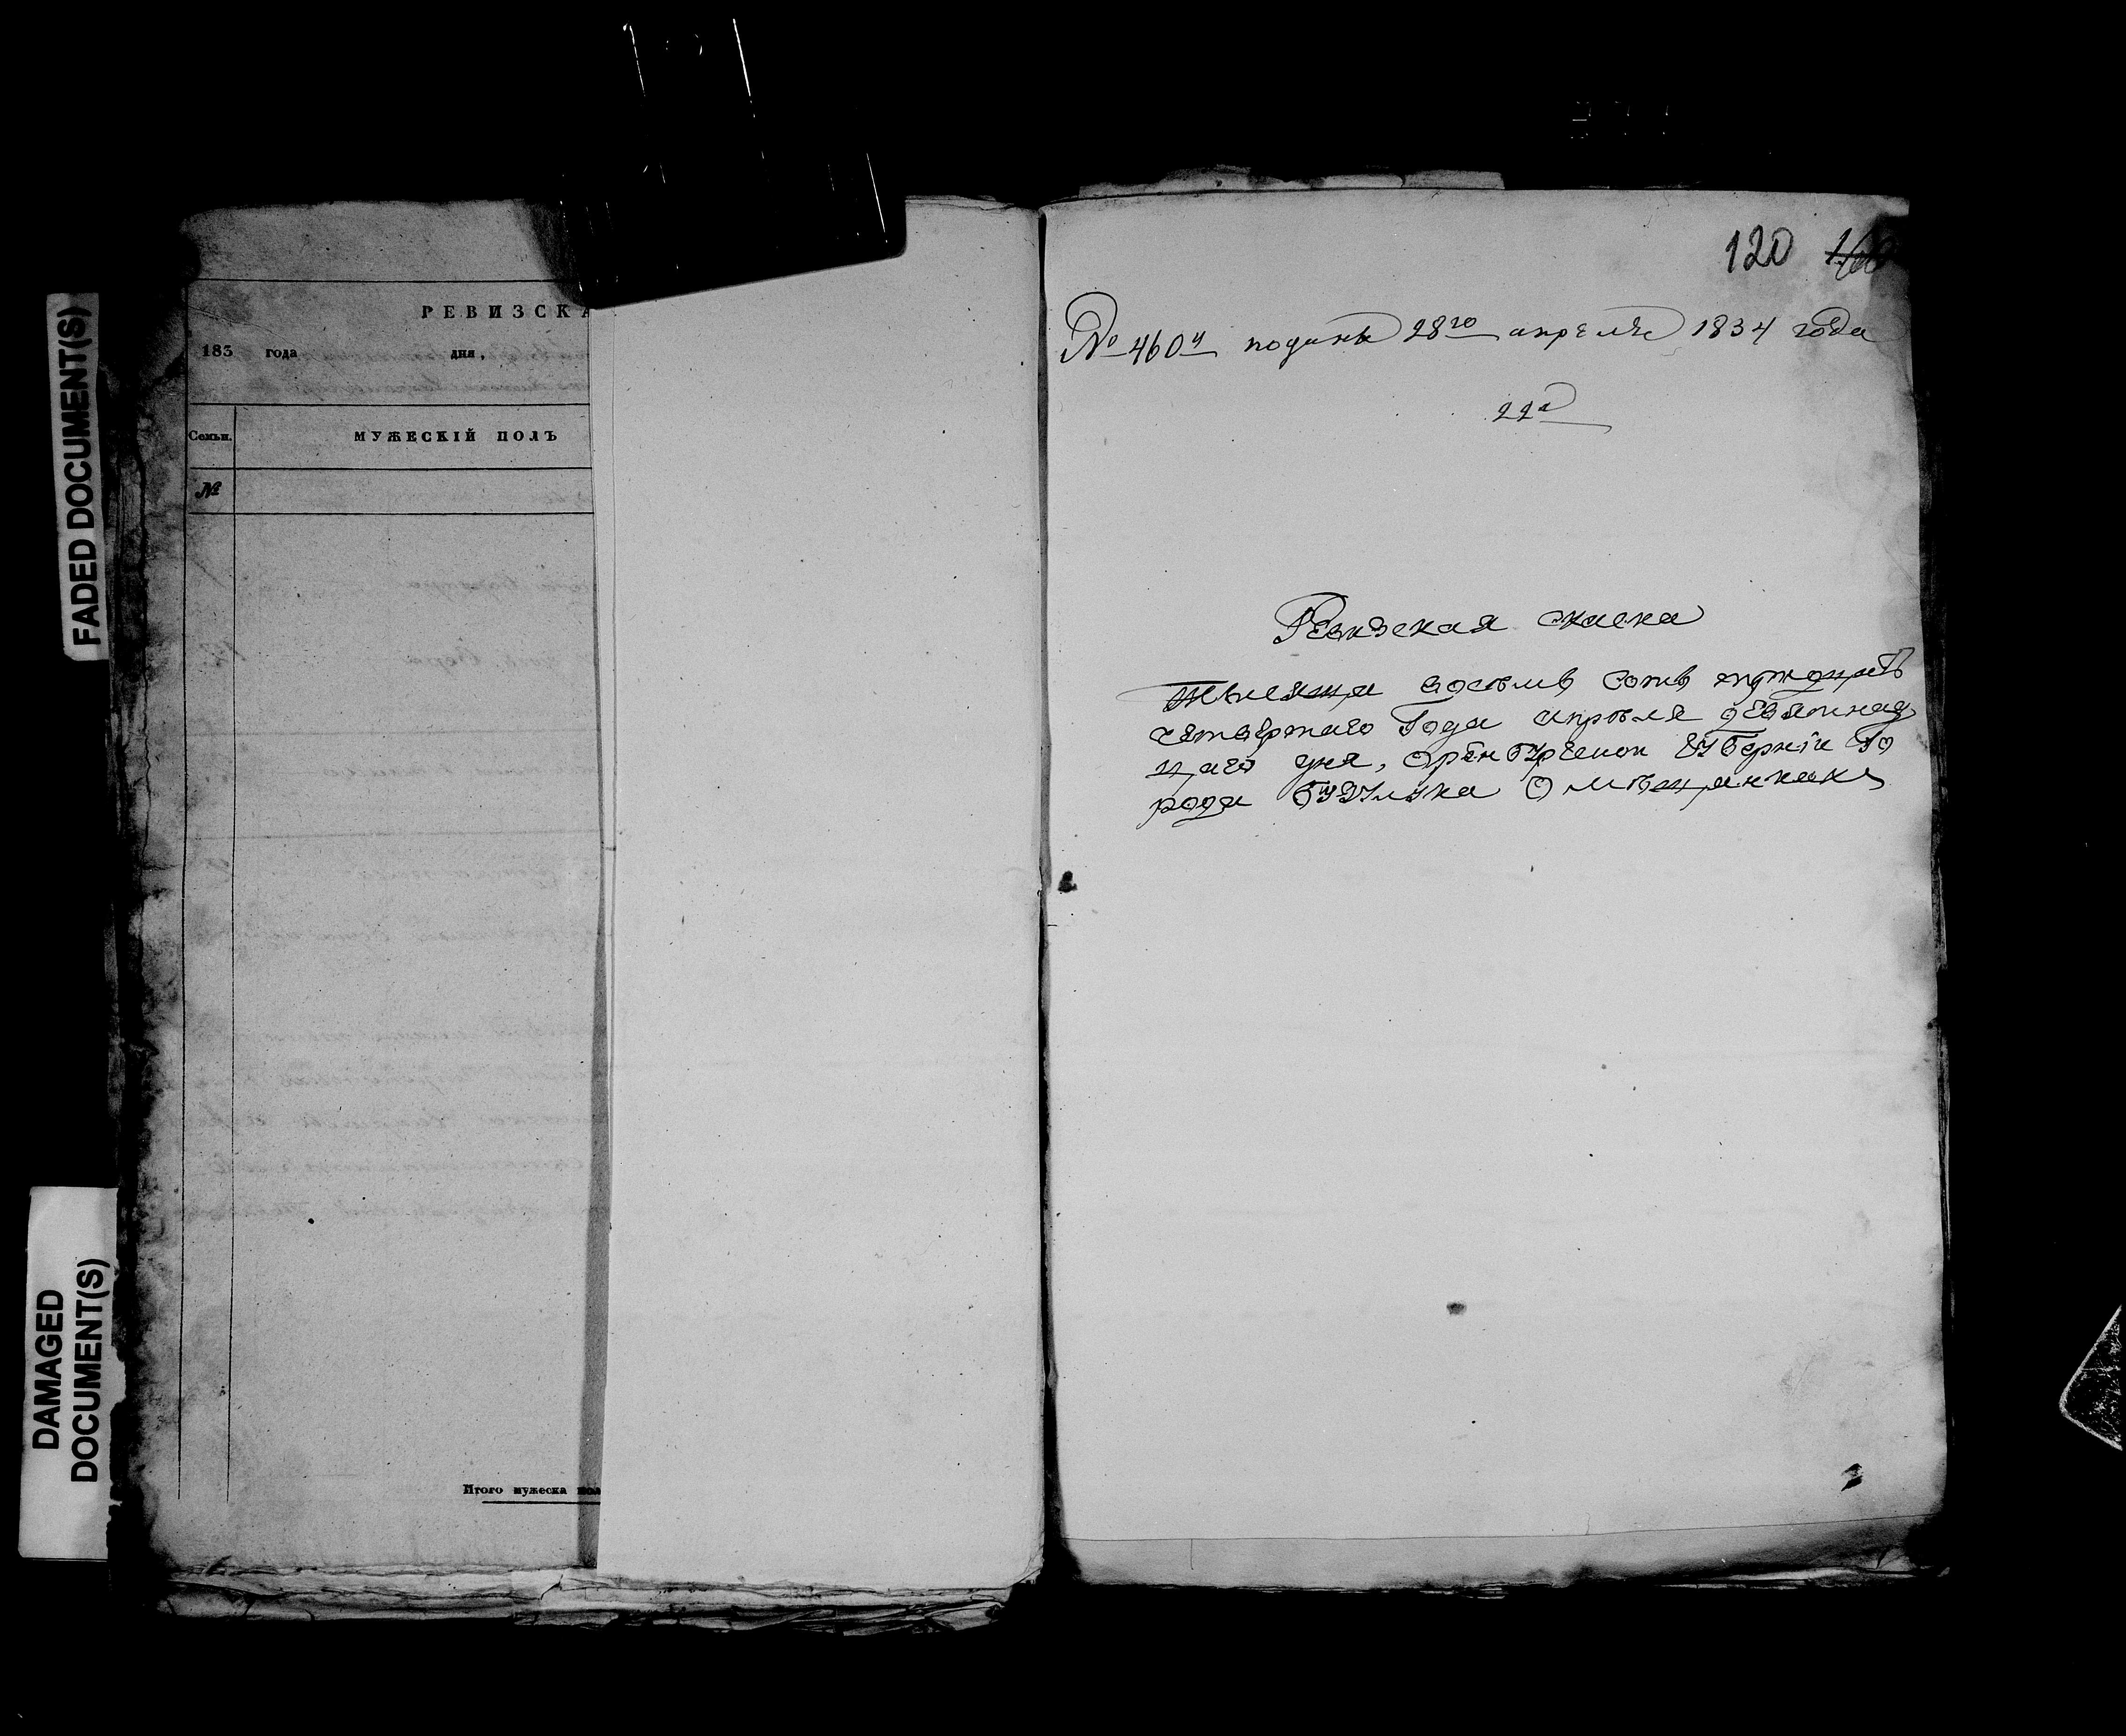 FADED DOCUMENT(S)
DAMAGED
DOCUMENT(S)
РЕВИЗСКА
183 года дня,
Семьи. МУЖЕСКІЙ ПОЛЪ
№
Итого мужеска пол
120
№ 460й подана 28го апреля 1834 года
22я
Ревизская скаска
тысяща восемь сотъ тридцать
четвертаго Года апреля девятнад
цаго дня, оренбургской губерніи Го
рода бузулука О мещанкахъ